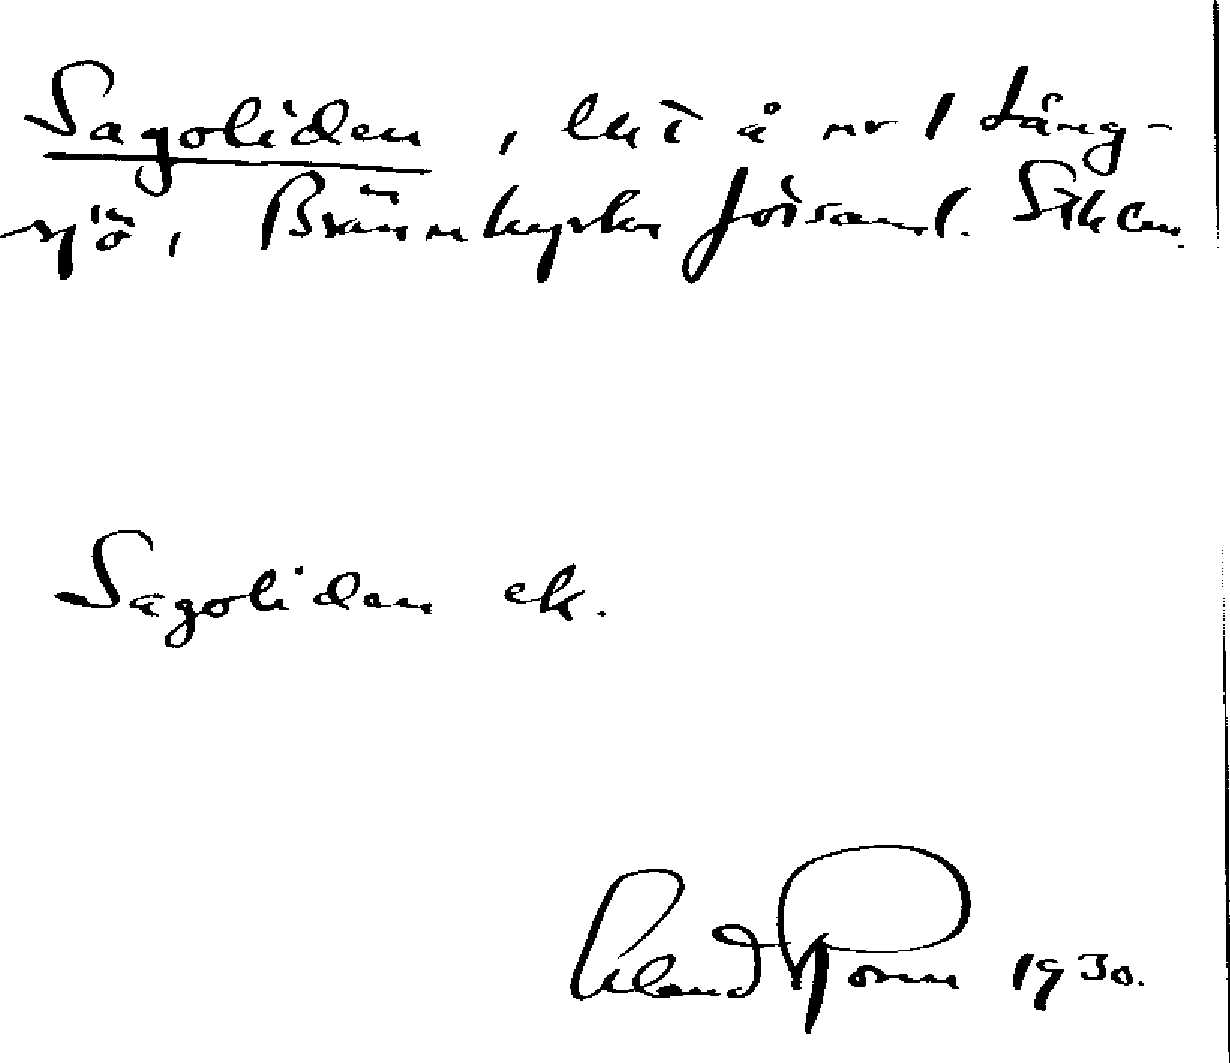 Sagoliden, lht å nr 1 Lång-
sjö, Brännkyrka församl. Sthlm.
Sagoliden ek.
Erland 1930.